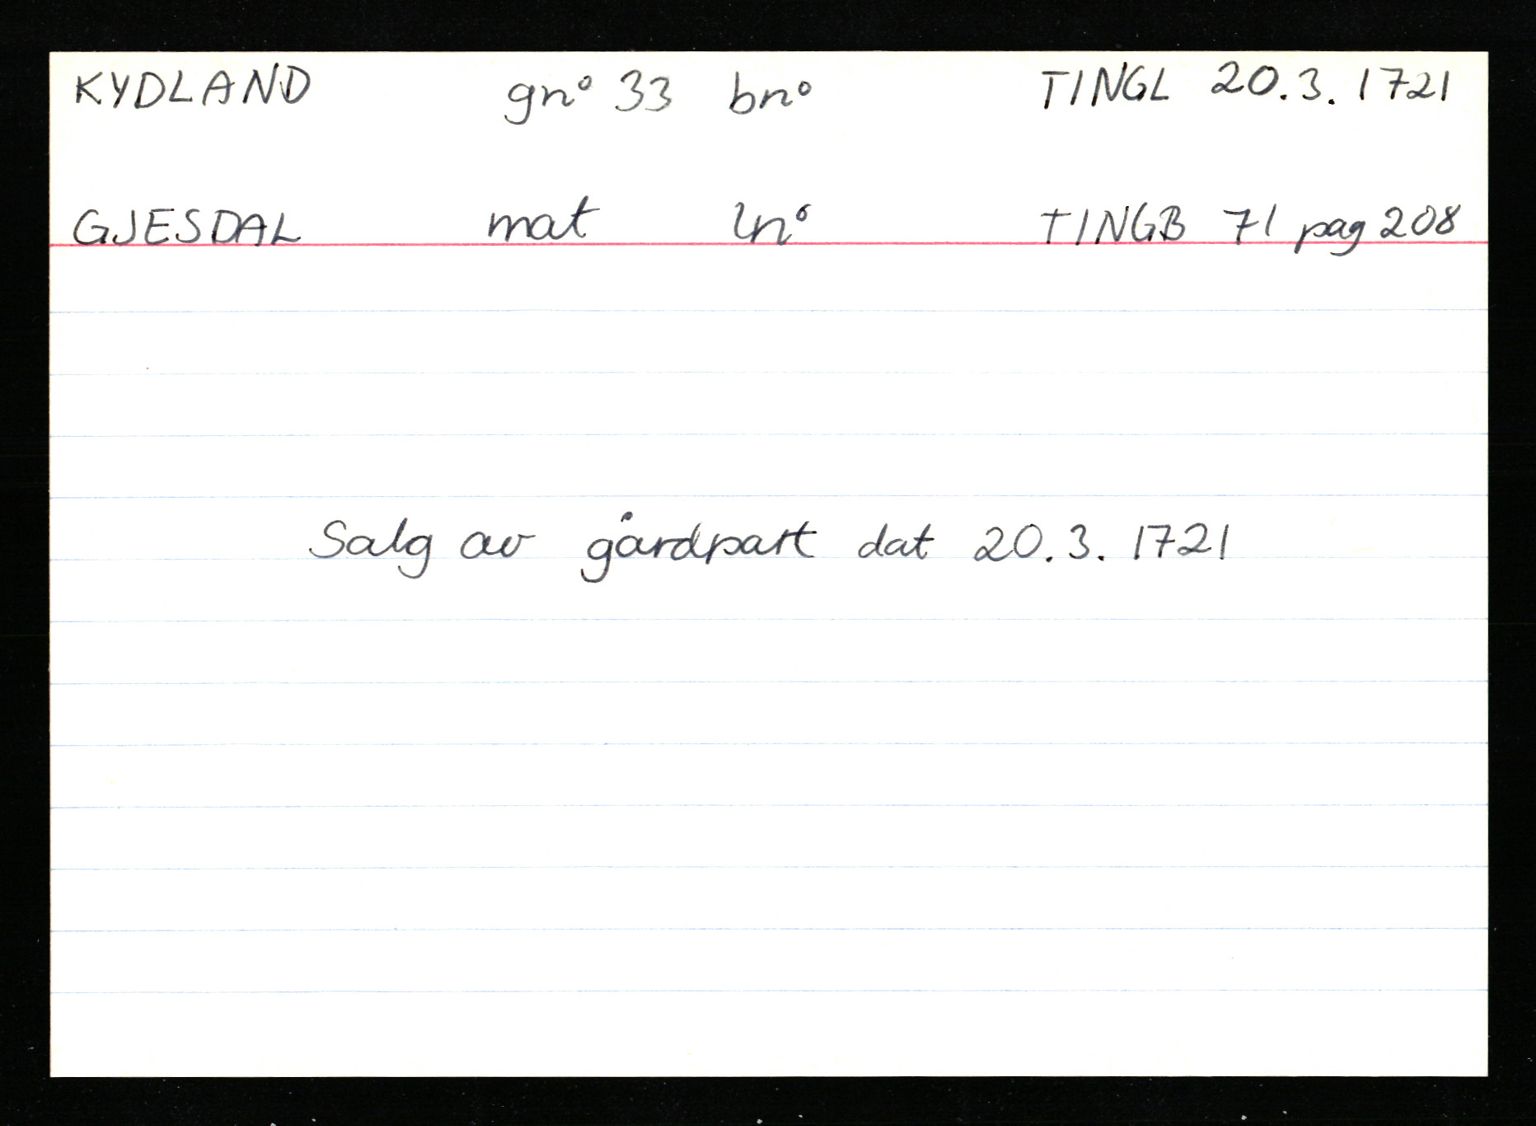 KYDLAND gn° 33 bn° TINGL 20.3.1721
GJESDAL mat ln° TINGB 71 pag 208
Salg av gårdpart dat 20.3.1721